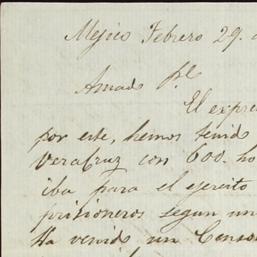 Mejico Febrero 29. d
Amado Pe
El expre
por este, hemos tenido
Veracruz con 600. ho
iba para el ejercito
prisioneros segun un
Ha venido un Conso